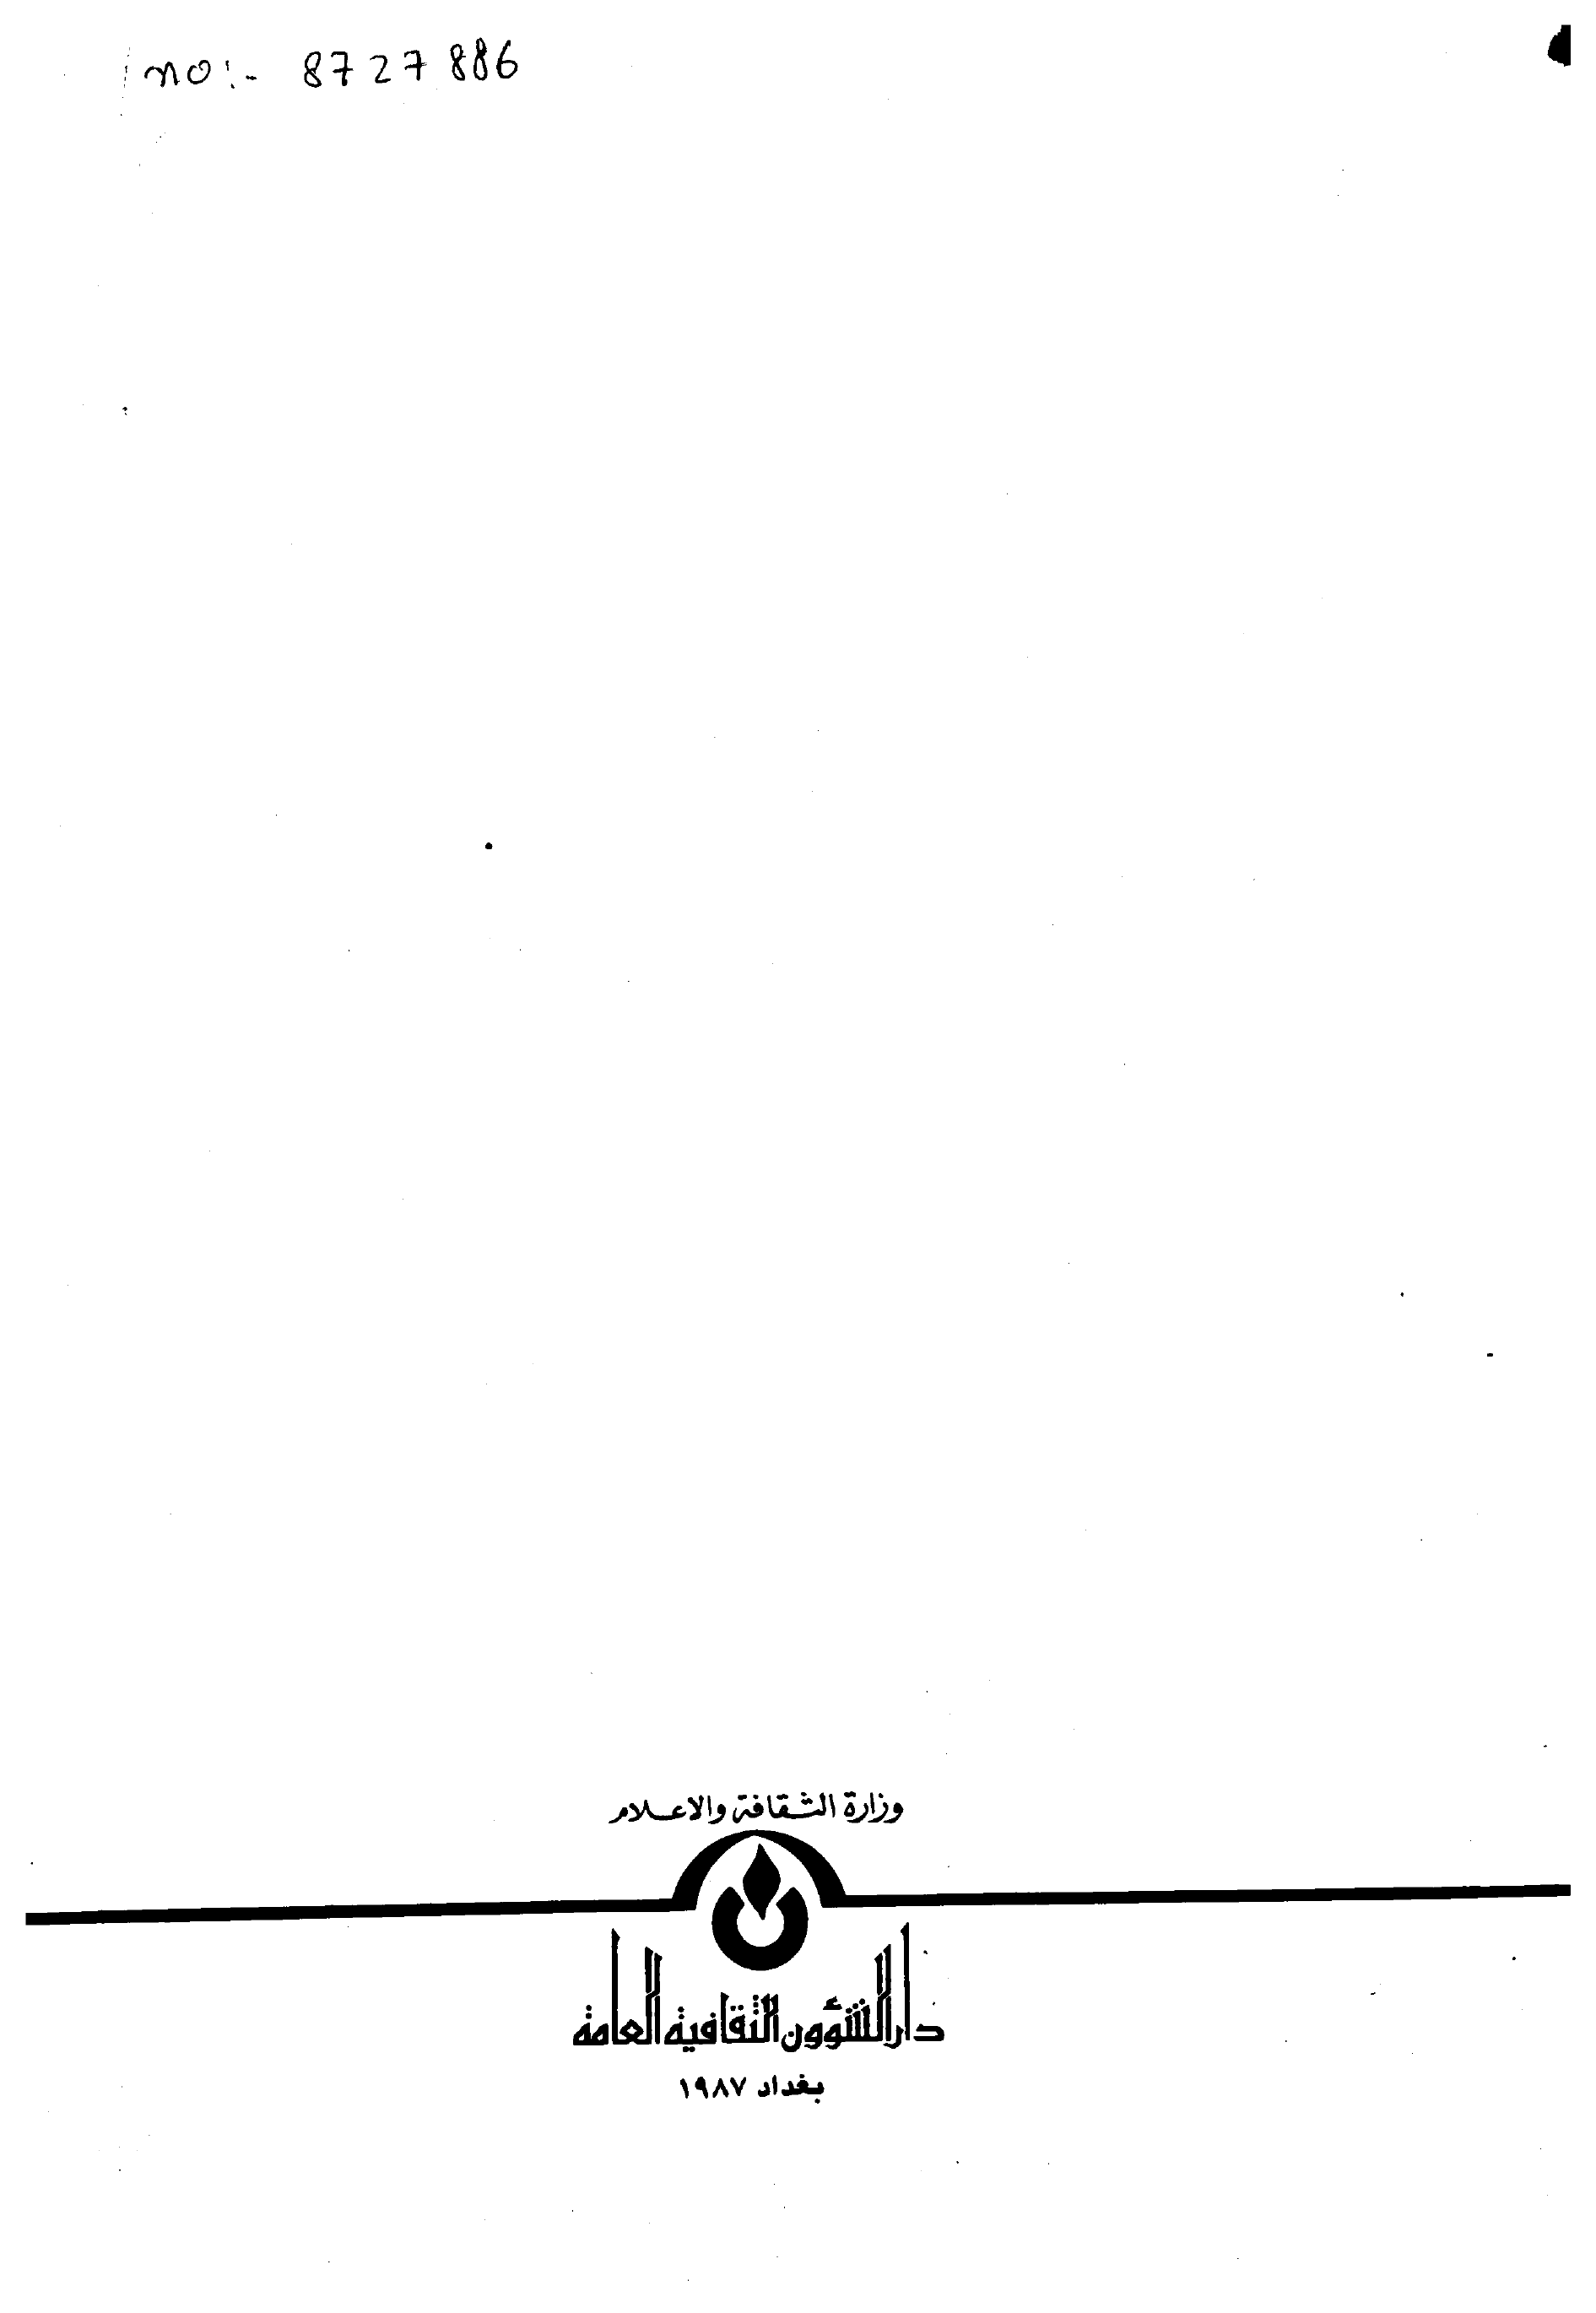 no:- 8727886
وزارة الثقافة والاعلام
دار الشؤون الثقافية العامة
بغداد ١٩٨٧